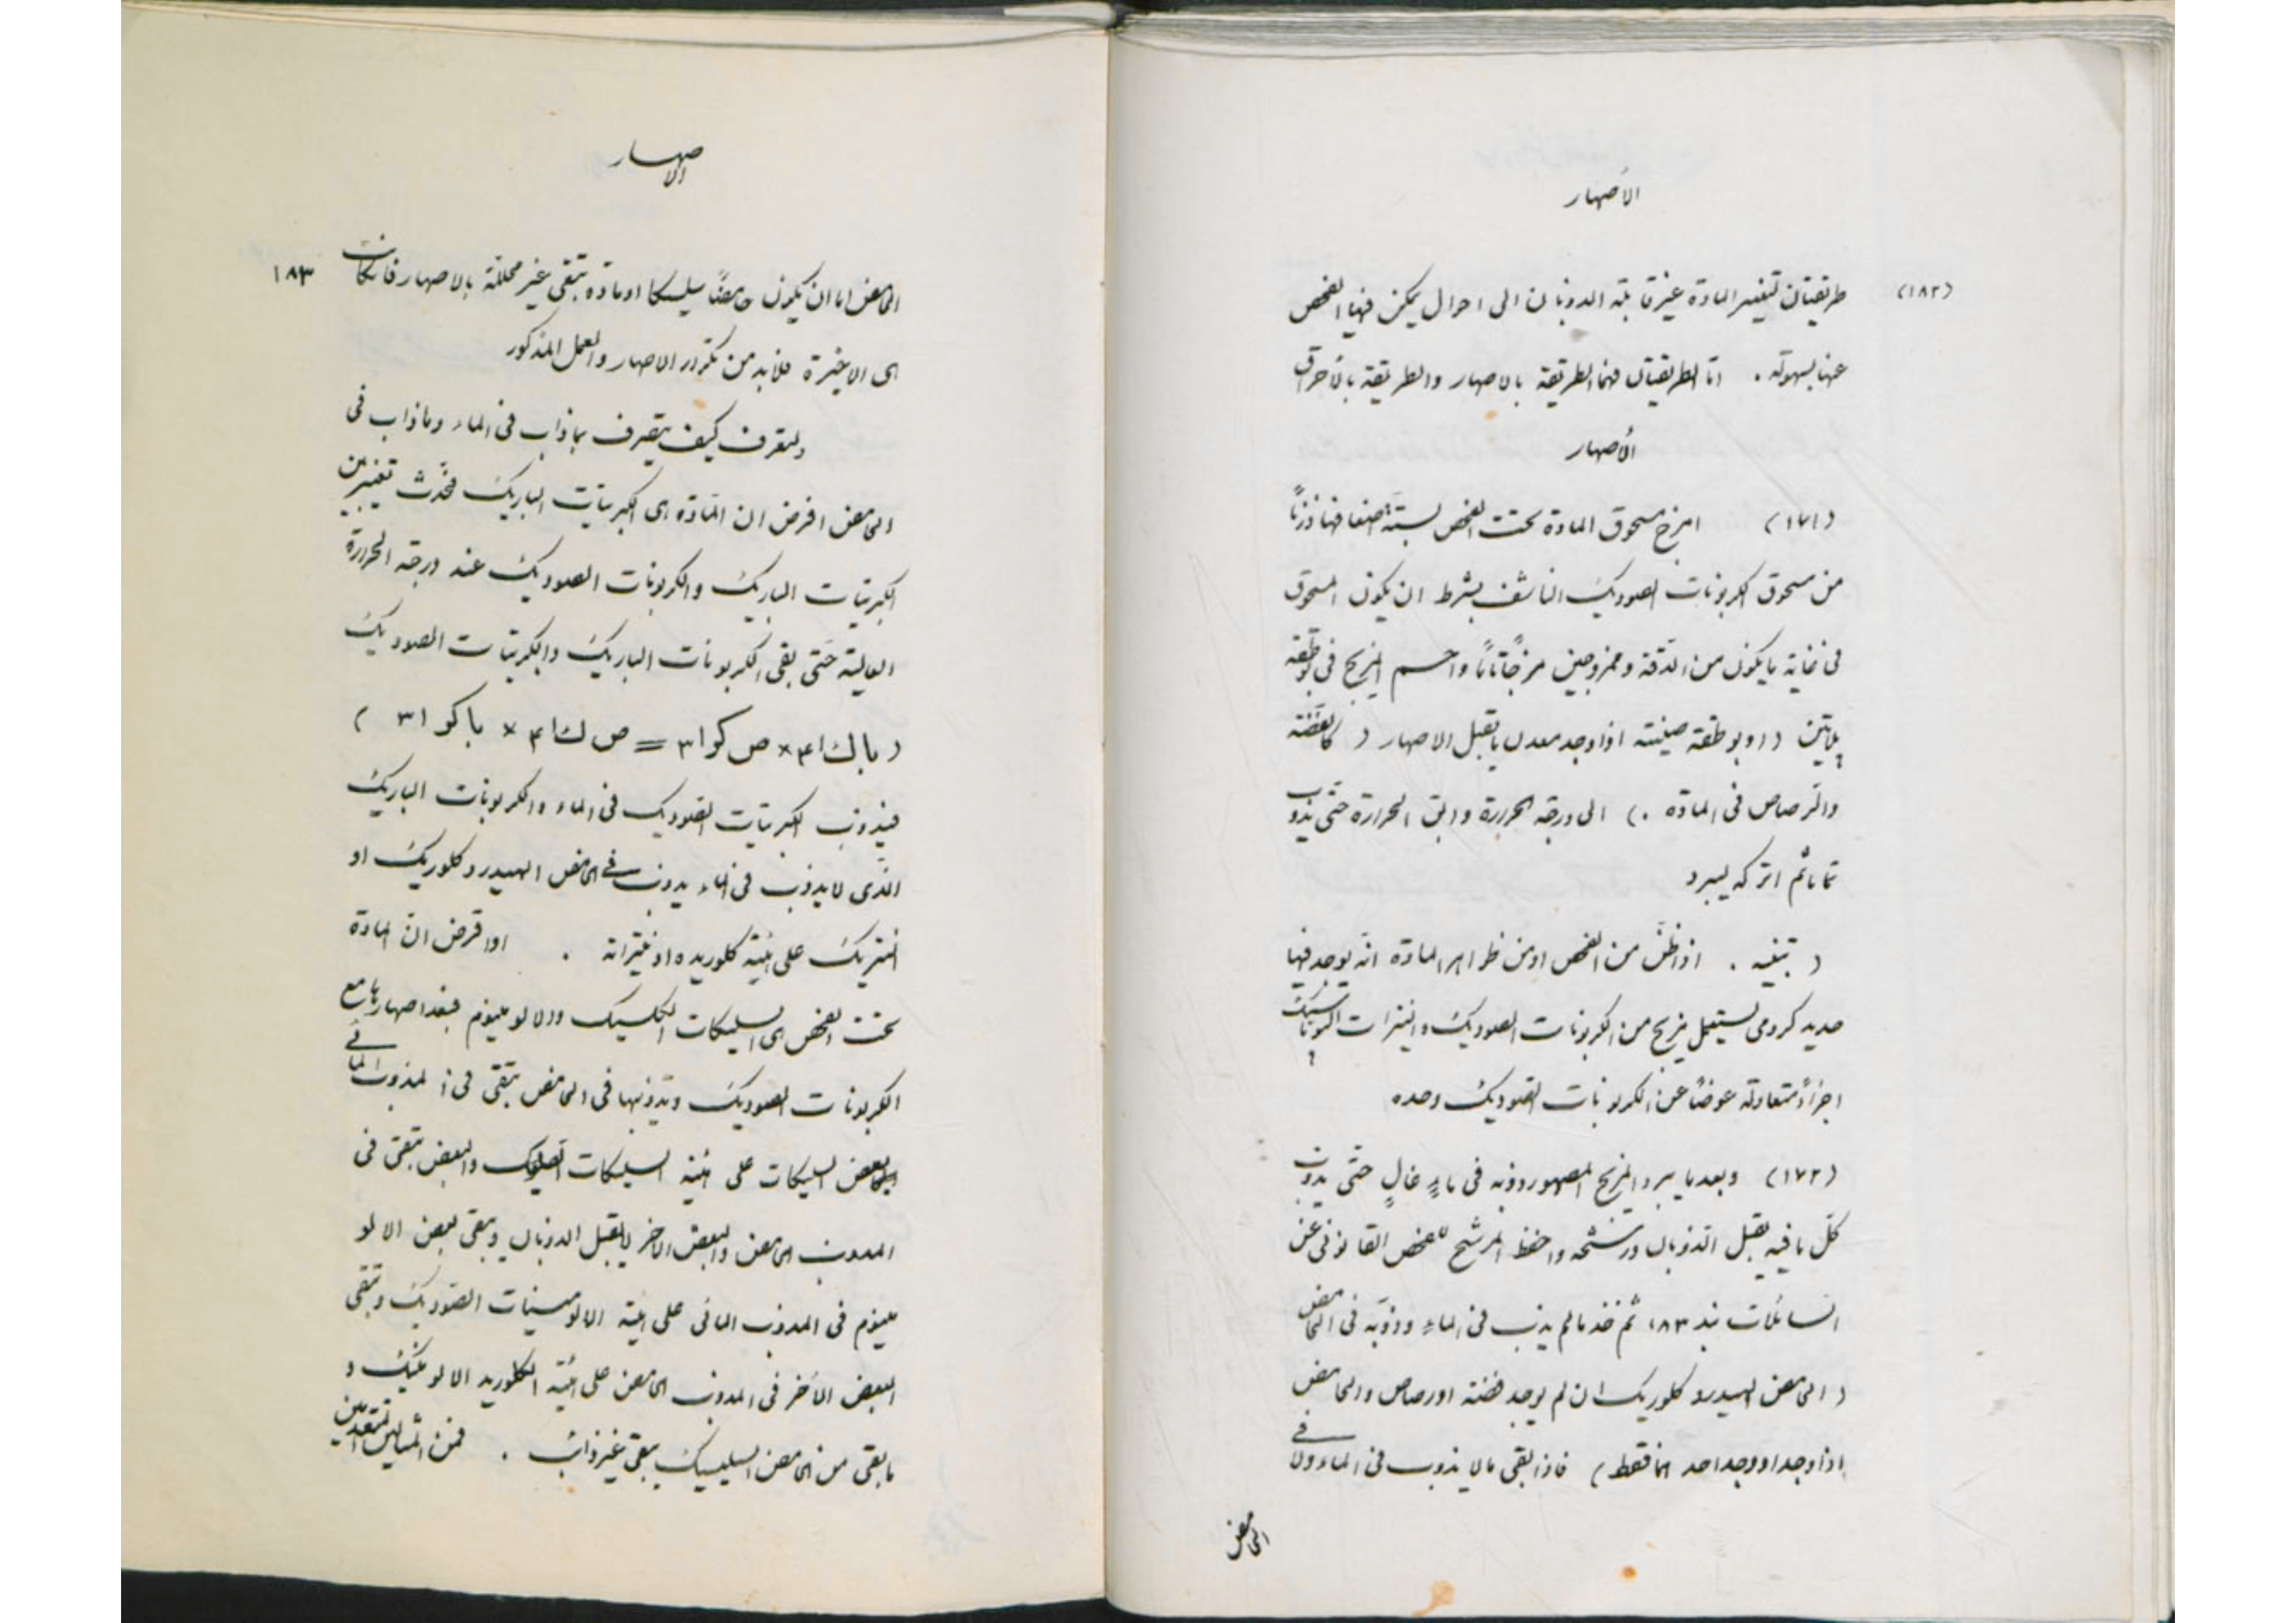 الأصهار
(١٨٢)
طريقتان لتغيير المادة غير قابلة الذوبان الى احوال يمكن فيها الفحص
عنها بسهولة . امّا الطريقتان فهما الطريقة بالاصهار والطريقة بالأحراق
الأصهار
(١٧١) امزج مسحوق المادة تحت الفحص بستة اضعافها وزناً
من مسحوق الكربونات الصوديك الناشف بشرط ان يكون المسحوق
فى غاية ما يكون من الدقة وممزوجين مزجًا تامًا واحم المزيج فى بوطقة
پلاتين (او بوطقة صينية اذا وجد معدن يقبل الاصهار ( كالفضة
والرصاص فى المادة .) الى درجة الحرارة وابق الحرارة حتّى يذوب
تمامًا ثم اتركه ليبرد
( تنبيه . اذا ظنّ من الفحص او من ظواهر المادة انّه يوجد فيها
حديد كرومى يستعمل مزيج من الكربونات الصوديك والنيترات الپوتاسيك
اجزاءً متعادلة عوضًا عن الكربونات الصوديك وحده
(١٧٢) وبعد ما يبرد المزيج المصهور ذوّبه فى ماءٍ غالٍ حتّى يذوب
كلّ ما فيه يقبل الذوبان ورشحه واحفظ المرشح للفحص القانونى عن
السائلات بند ١٨٣ ثم خذ ما لم يذب فى الماء وذوّبه فى الحامض
( الحامض الهيدروكلوريك ان لم يوجد فضة او رصاص والحامض
اذا وجد او وجد احدهما فقط ) فاذا بقى ما لا يذوب فى الماء ولا فى
الحامض
الاصهار
١٨٣
الحامض اما ان يكون حامضًا سيليسكا او مادة تبقى غير محللة بالاصهار فان كانت
هى الاخيرة فلا بد من تكرار الاصهار والعمل المذكور
ولتعرف كيف يتصرف بماذاب فى الماء وماذاب فى
الحامض افرض ان المادة هى الكبريتات الباريك فحدث تغيير بين
الكبريتات الباريك والكربونات الصوديك عند درجة الحرارة
العالية حتّى بقى الكربونات الباريك والكبريتات الصوديك
( با ك ا ٤ × ص كو ا ٣ = ص ك ا ٤ × با كو ا ٣ )
فيذوب الكبريتات الصوديك فى الماء والكربونات الباريك
الذى لا يذوب فى الماء يذوب فى الحامض الهيدروكلوريك او
النيتريك على هيئة كلوريده او نيتراته . او افرض انّ المادة
تحت الفحص هى السليكات الكلسيك والالومينوم فبعد اصهارها مع
الكربونات الصوديك وتذويبها فى الحامض تبقى فى المذوب المائى
بعض السليكات على هيئة السليكات الصوديك والبعض تبقى فى
المذوب الحامض والبعض الآخر لا يقبل الذوبان ويبقى بعض الالو
مينوم فى المذوب المائى على هيئة الالومينات الصوديك وتبقى
البعض الآخر فى المذوب الحامض على هيئة الكلوريد الالومنيك و
ما بقى من الحامض السليسيك يبقى غير ذائب . فمن المثالين المتقدمين